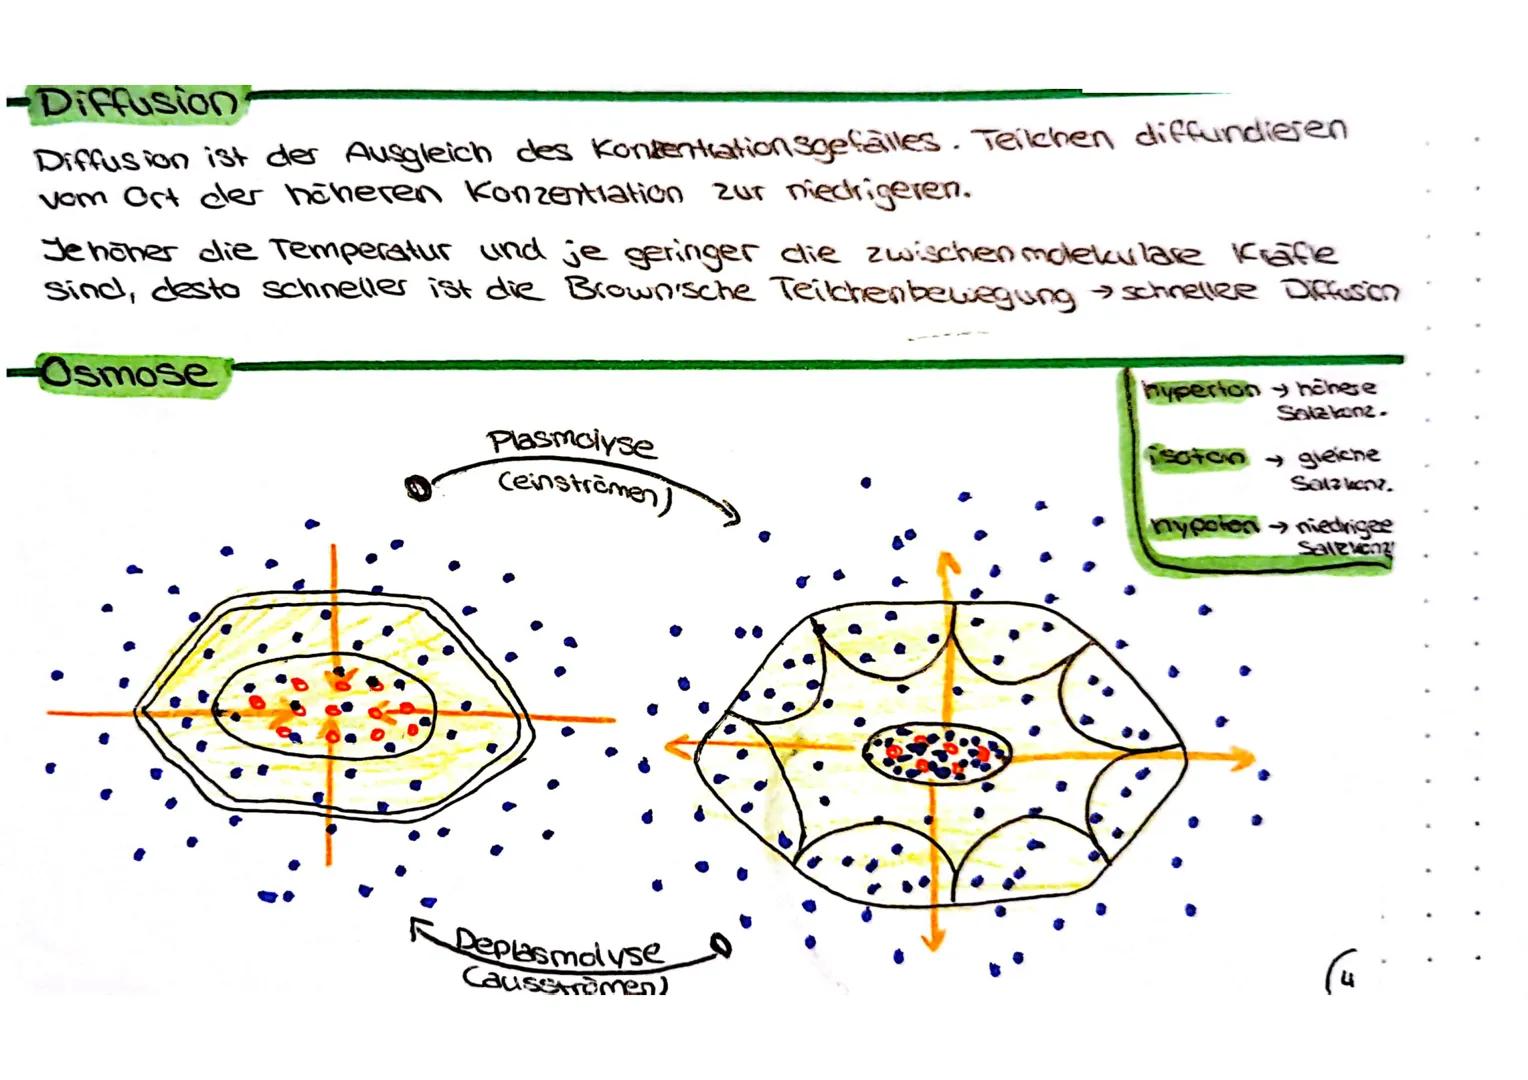 Diffusion
Diffusion ist der Ausgleich des Konzentrationsgefälles. Teilchen diffundieren
vom Ort der höheren Konzentration zur niedrigeren.
Je höher die Temperatur und je geringer die zwischenmolekulare Kräfte
sind, desto schneller ist die Brown'sche Teilchenbewegung → schnellere Diffusion
Osmose
hyperton → höhere
Salzkonz.
isoton → gleiche
Salzkonz.
hypoton → niedrigee
Salzkonz
Plasmolyse
(einströmen)
Deplasmolyse
(ausströmen)
4